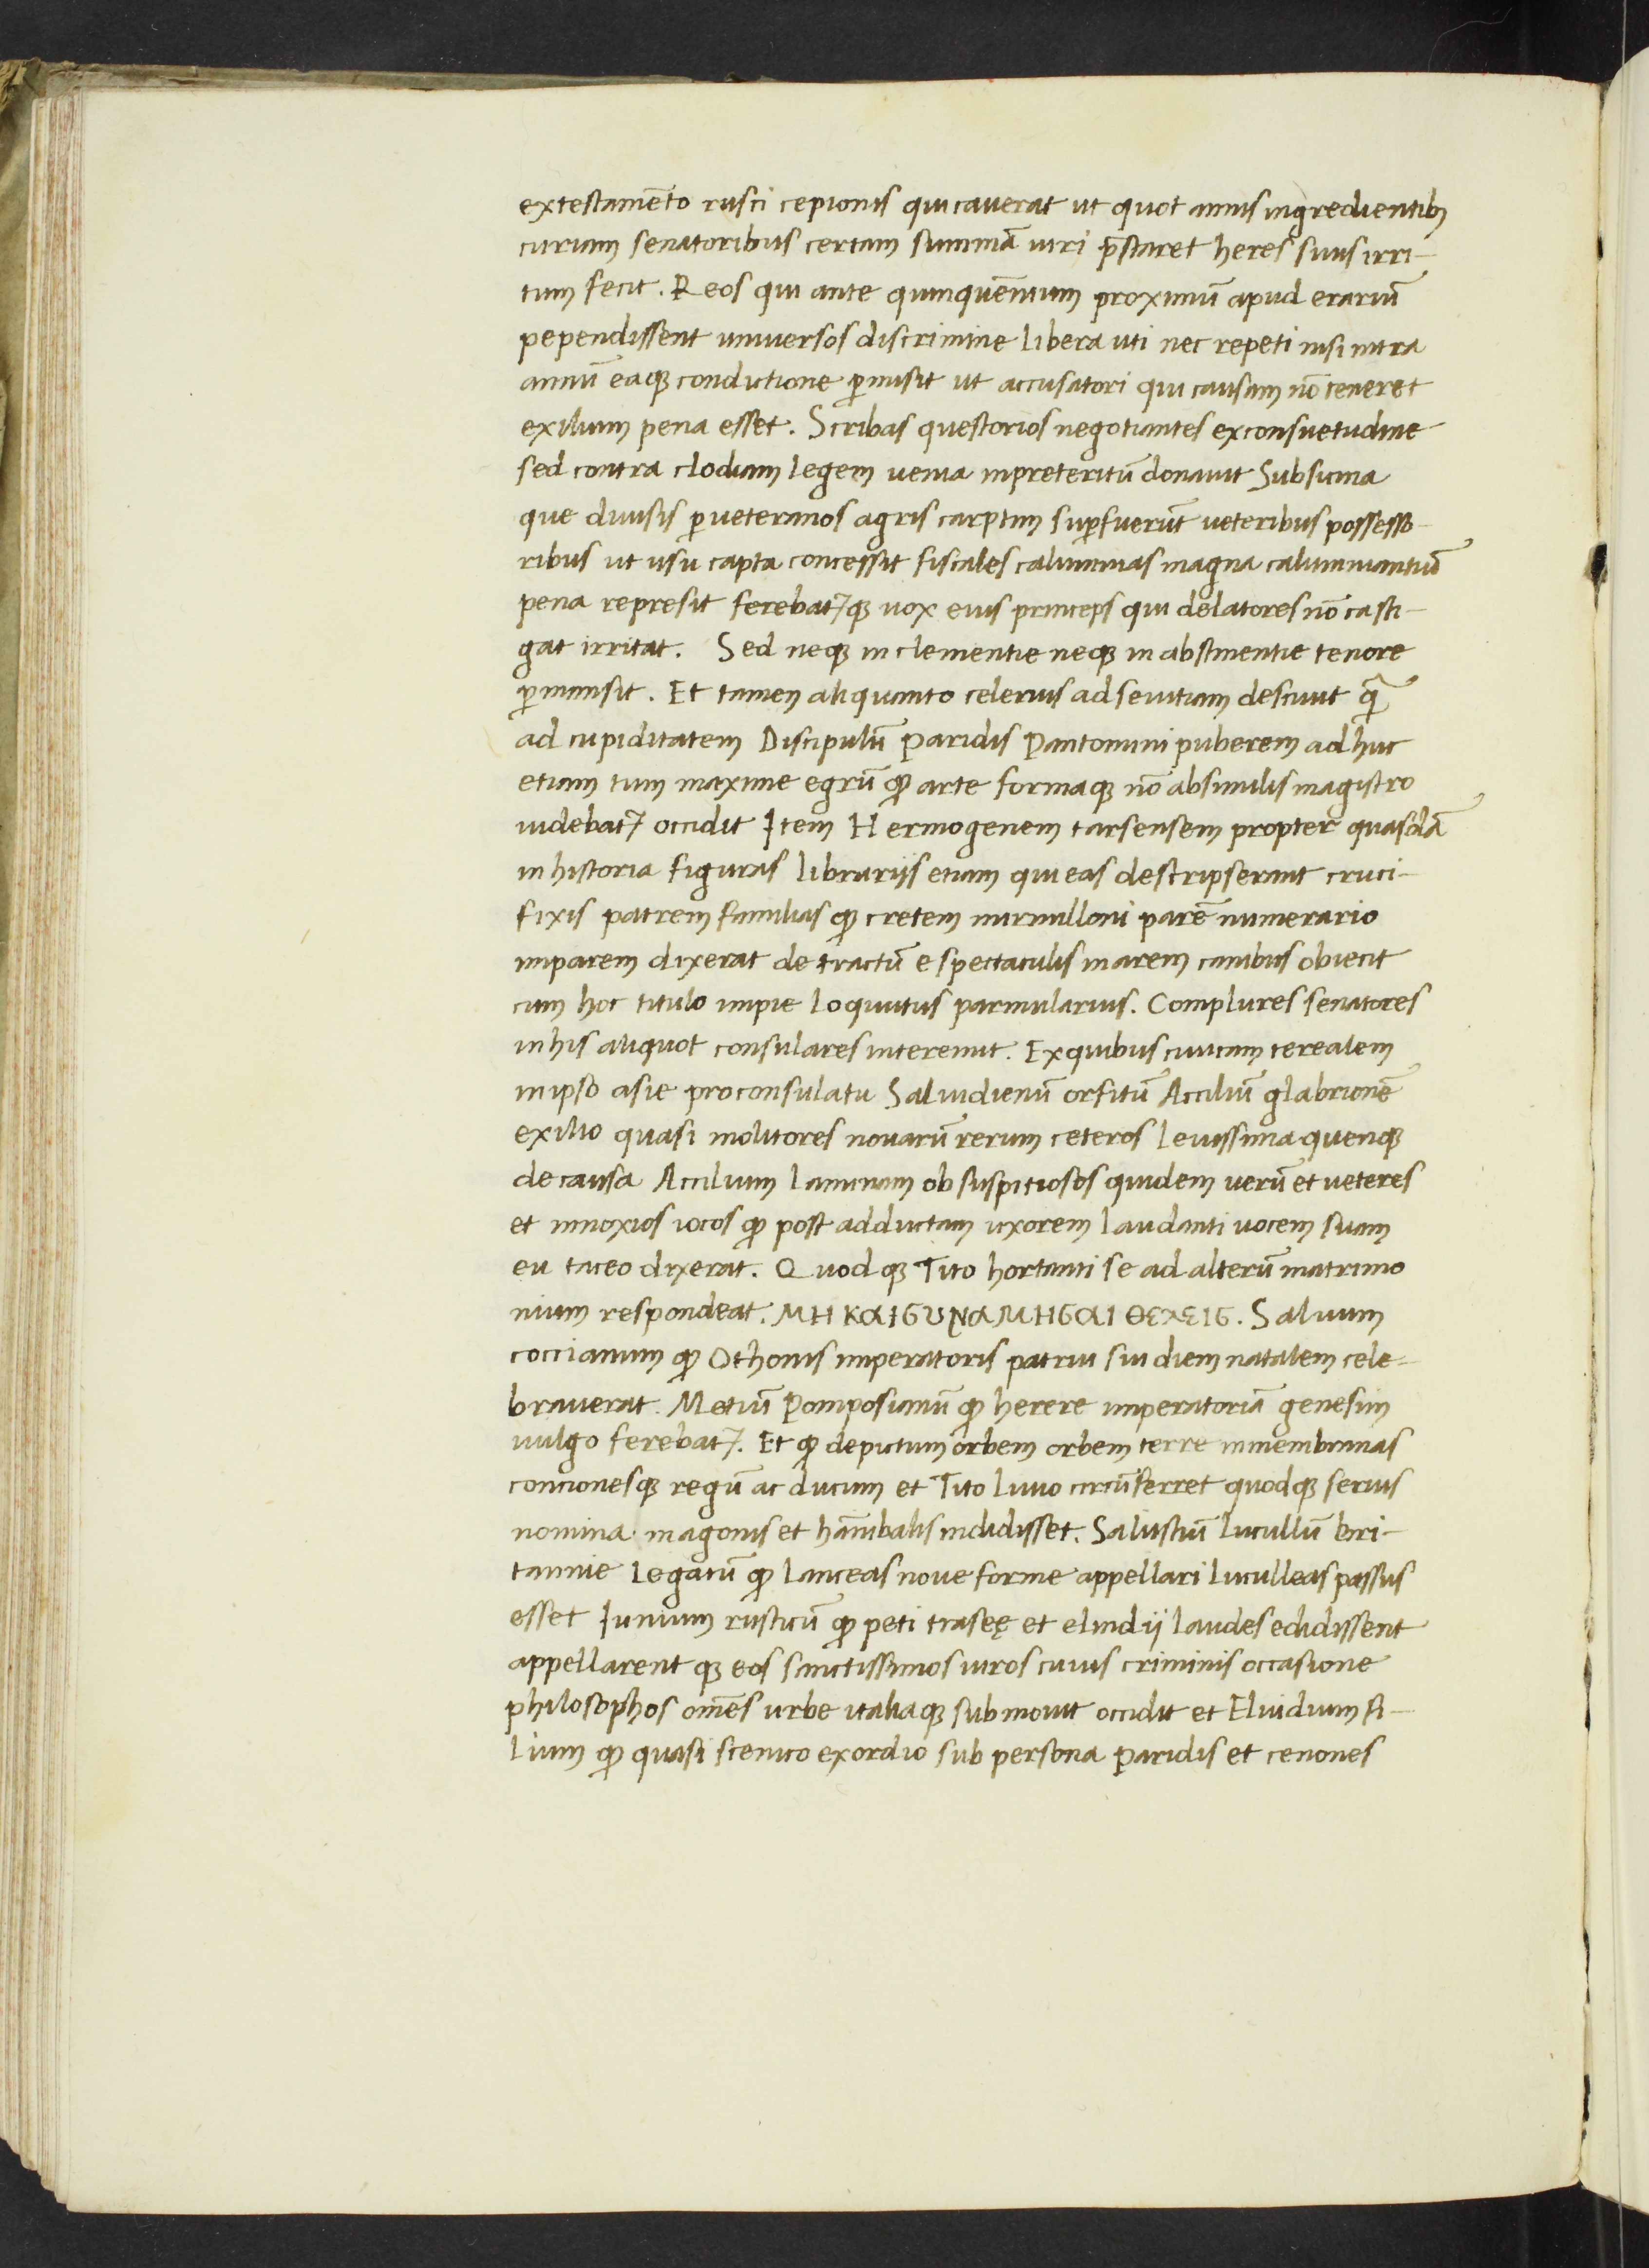 extestamēto rusci cepionis qui cauerat ut quot annis ingredientibꝫ
curiam senatoribus certam summā uiri p̄staret heres suus irri-
tum fecit. Reos qui ante quinquēnium proximū apud erariū
pependissent uniuersos discrimine libera uti nec repeti nisi intra
annū eaqꝫ condictione p̄misit ut accusatori qui causam nō teneret
exilium pena esset. Scribas questorios negotiantes exconsuetudine
sed contra clodiam legem uenia inpreteritū donauit Subsiciua
que diuisis p̄ueteranos agris carptim sup̄fuerūt ueteribus possesso-
ribus ut usu capta concessit fiscales calumnias magna calumniantiū
pena represit ferebat⁊qꝫ uox eius princeps qui delatores nō casti-
gat irritat. Sed neqꝫ in clementie neqꝫ in abstinentie tenore
p̄mansit. Et tamen aliquanto celerius ad seuitiam desciuit q̄
ad cupiditatem Discipulū Paridis Pantomimi puberem adhuc
etiam tum maxime egrū ꝙ arte formaqꝫ nō absimilis magistro
uidebat⁊ occidit Item Hermogenem tarsensem propter quasdā
in historia figuras librarijs etiam qui eas descripserant cruci-
fixis patrem familias ꝙ cretem mirmilloni parē numerario
imparem dixerat detractū e spectaculis inarem canibus obiecit
cum hoc titulo impie loquutus parmularius. Complures senatores
in his aliquot consulares interemit. Exquibus ciuicam cerealem
in ipso asie proconsulatu Saluidienū orfitū Acciliū glabrionē
exilio quasi molitores nouarū rerum ceteros leuissima quenqꝫ
de causa Accilium lamiam ob suspitiosos quidem uerū et ueteres
et innoxios iocos ꝙ post adductam uxorem laudanti uocem suam
eu taceo dixerat. Quodqꝫ Tito hortanti se ad alterū matrimo
nium respondeat. ΜΗ ΚΑΙ ϹΥΝΑΜΗϹΑΙ ΘΕΛΕΙϹ. Saluum
coccianum ꝙ Othonis imperatoris patrui sui diem natalem cele=
brauerat. Metiū Pomposianū ꝙ herere imperatoriā genesim
uulgo ferebat⁊. Et ꝙ depictum orbem orbem terre inmembranas
concionesqꝫ regū ac ducum et Tito liuio circūferret quodqꝫ seruis
nomina magonis et hānibalis indidisset. Salustiū lucullū bri-
tannie legatū ꝙ lanceas noue forme appellari luculleas passus
esset Iunium rusticū ꝙ peti traseę et elindij laudes edidissent
appellarentqꝫ eos sanctissimos uiros cuius criminis occasione
philosophos om̄es urbe italiaqꝫ submouit occidit et Eluidium fi-
lium ꝙ quasi scenico exordio sub persona Paridis et cenones